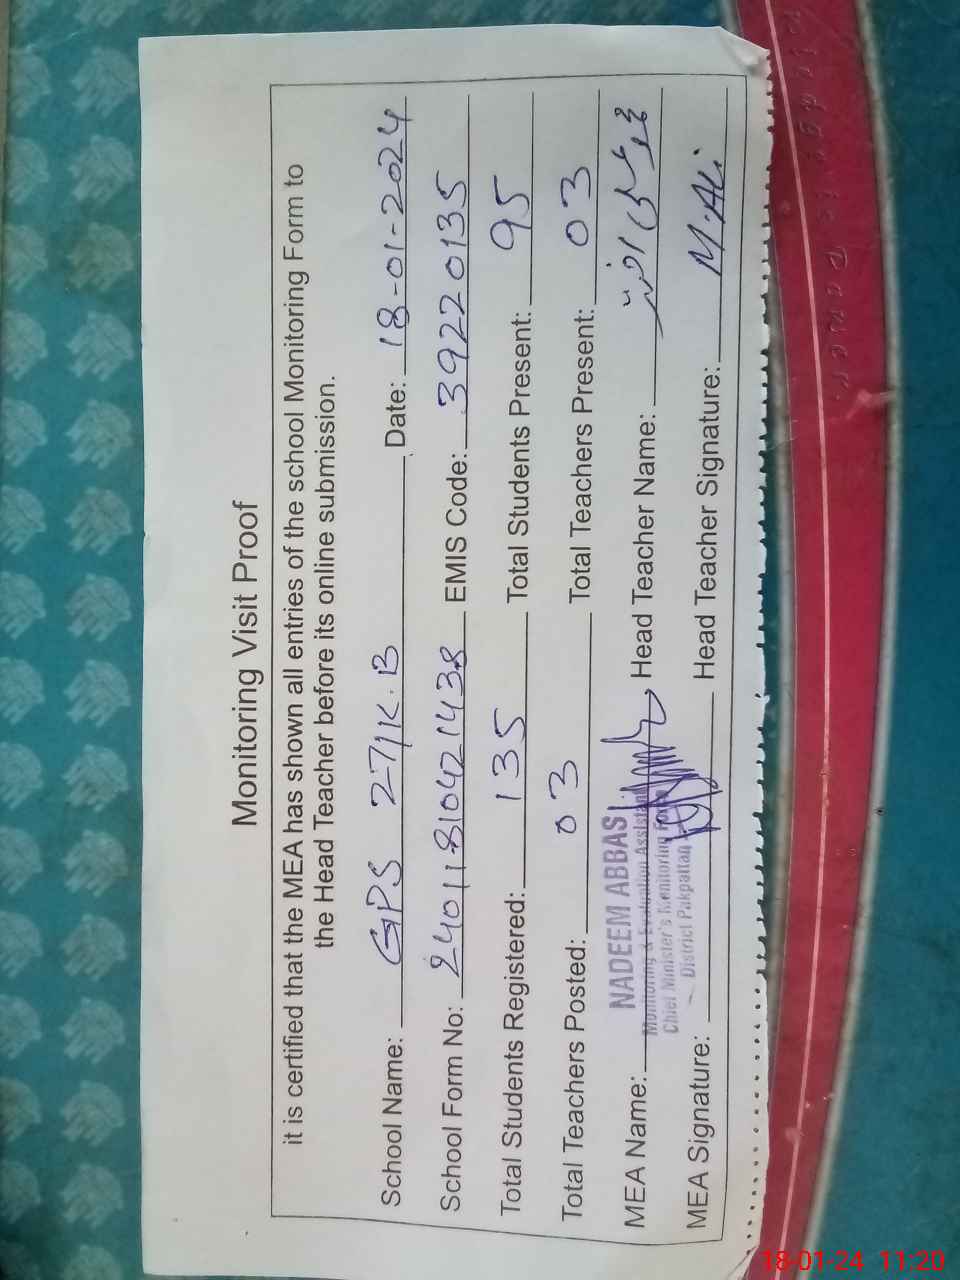 Monitoring Visit Proof
it is certified that the MEA has shown all entries of the school Monitoring Form to
the Head Teacher before its online submission.
School Name: GPS 27/K.B Date: 18-01-2024
School Form No: 24011810421438 EMIS Code: 39220135
Total Students Registered: 135 Total Students Present: 95
Total Teachers Posted: 03 Total Teachers Present: 03
MEA Name: NADEEM ABBAS Head Teacher Name:
Monitoring & Evaluation Assistant
Chief Minister's Monitoring Force
District Pakpattan
MEA Signature: Head Teacher Signature: M.Ali
18-01-24 11:20